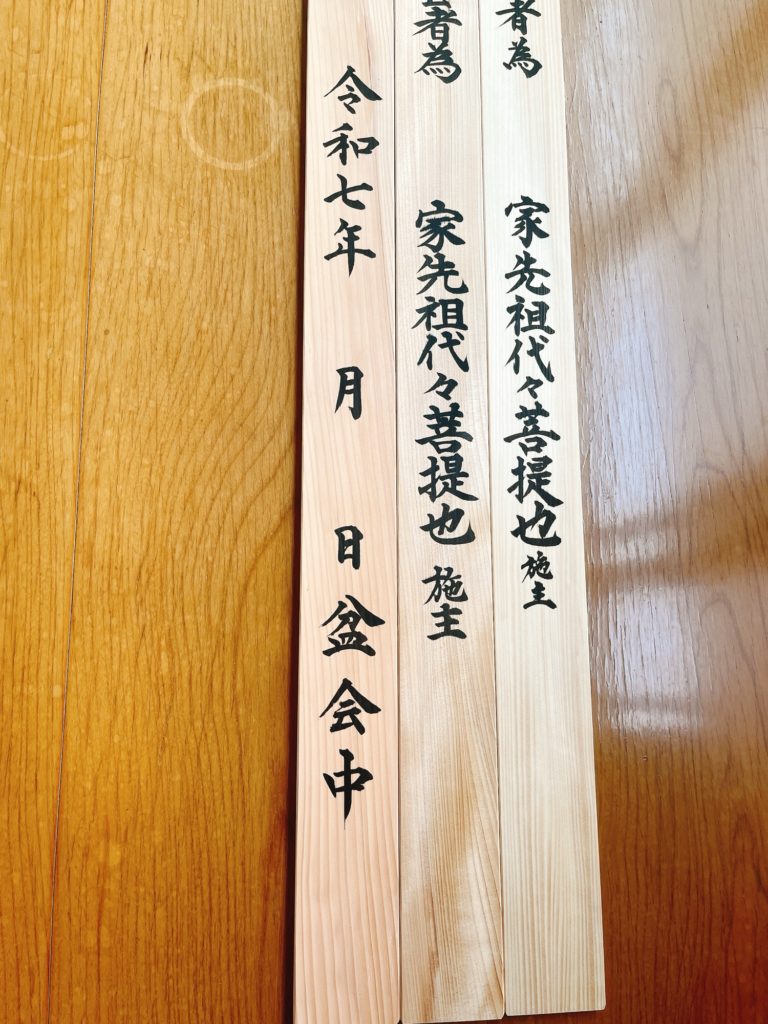 者為 家先祖代々菩提也 施主
者為 家先祖代々菩提也 施主
令和七年 月 日盆会中